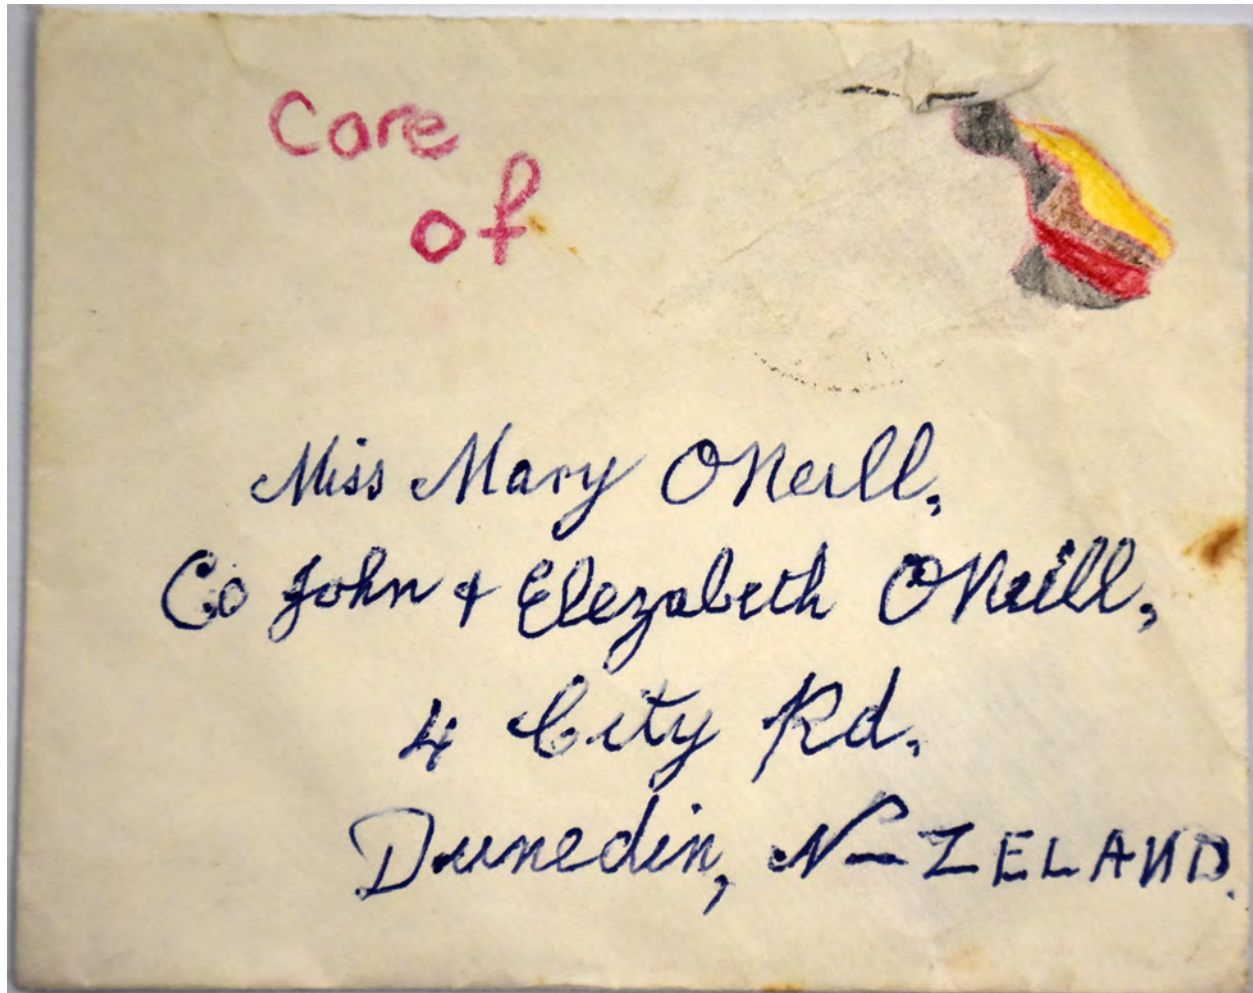 Care
of
Miss Mary ONeill,
Co John & Elezabeth ONeill,
4 City Rd,
Dunedin, N-ZELAND.